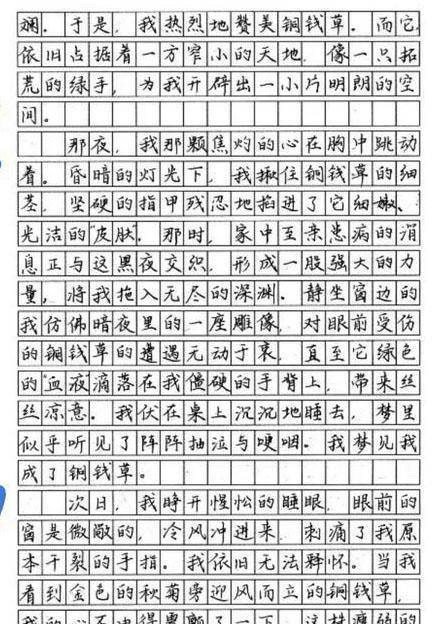 斓。于是，我热烈地赞美铜钱草。而它，
依旧占据着一方窄小的天地，像一只拓
荒的绿手，为我开辟出一小片明朗的空
间。
那夜，我那颗焦灼的心在胸中跳动
着。昏暗的灯光下，我揪住铜钱草的细
茎，坚硬的指甲残忍地掐进了它细嫩、
光洁的"皮肤"。那时，家中至亲患病的消
息正与这黑夜交织，形成一股强大的力
量，将我拖入无尽的深渊。静坐窗边的
我仿佛暗夜里的一座雕像，对眼前受伤
的铜钱草的遭遇无动于衷，直至它绿色
的"血液"滴落在我僵硬的手背上，带来丝
丝凉意。我伏在桌上沉沉地睡去，梦里
似乎听见了阵阵抽泣与哽咽。我梦见我
成了铜钱草。
次日，我睁开惺忪的睡眼，眼前的
窗是微敞的，冷风冲进来，刺痛了我原
本干裂的手指。我依旧无法释怀。当我
看到金色的秋菊旁迎风而立的铜钱草，
我的心不由得震颤了一下，这株瘦弱的